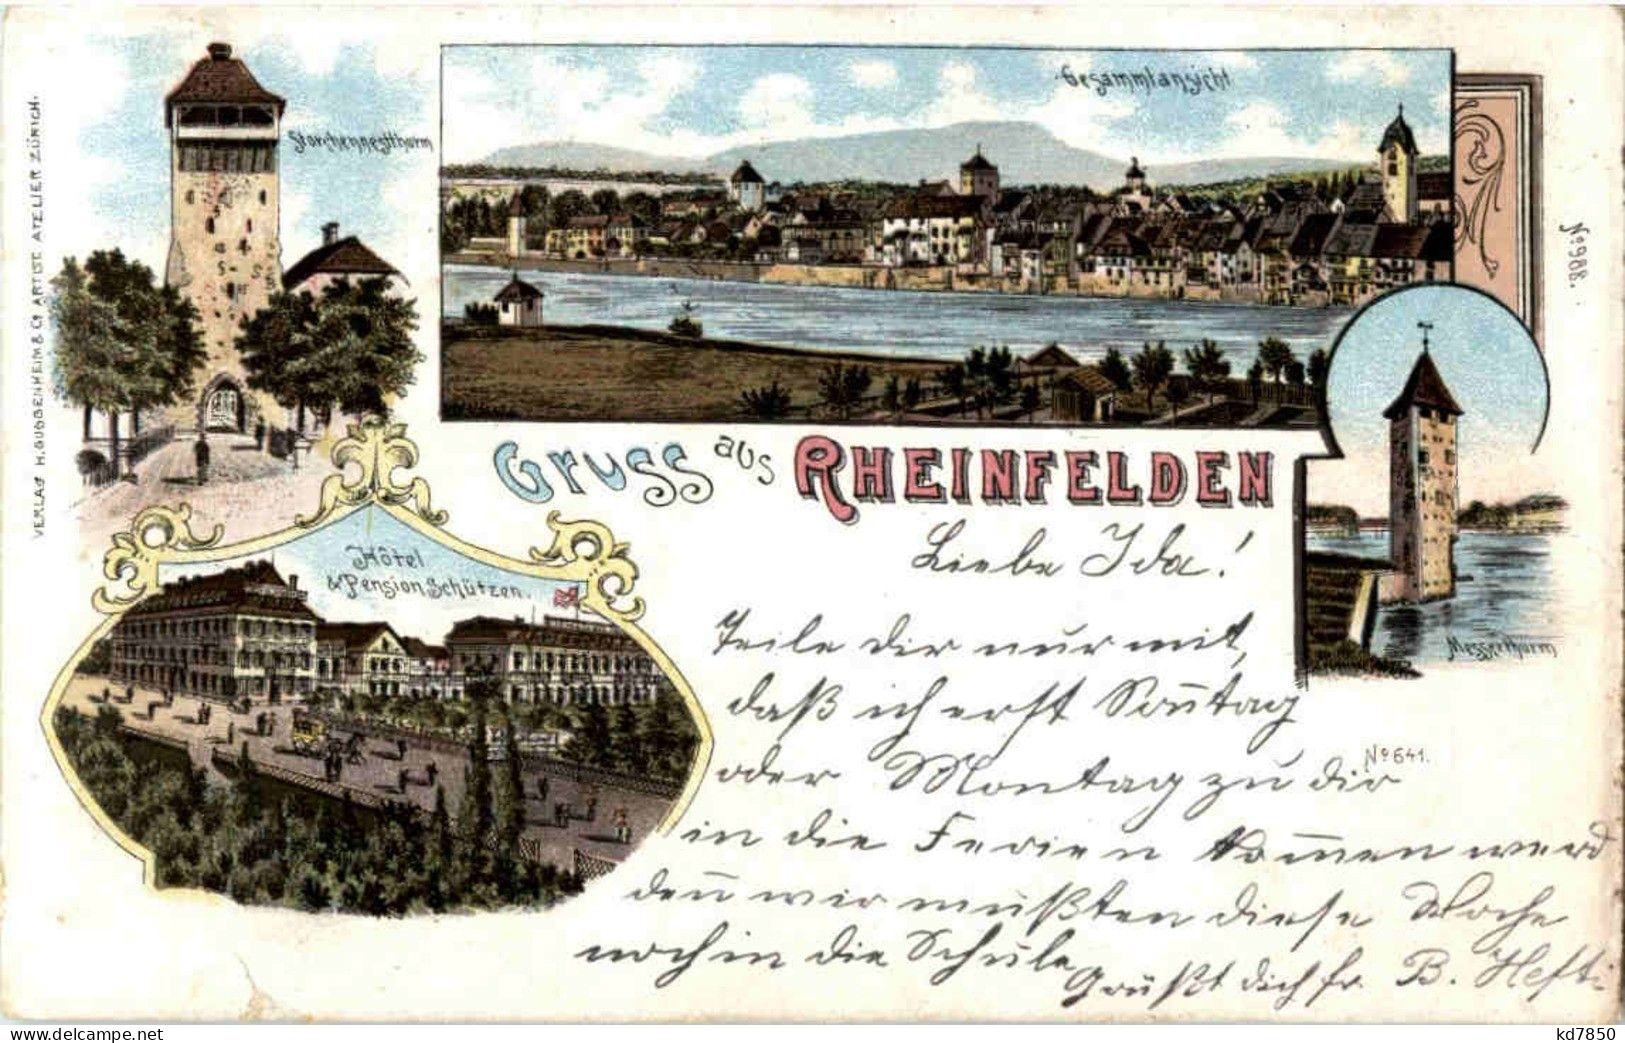 VERLAG H. GUGGENHEIM & Co ARTIST. ATELIER ZÜRICH.
Storchennestthurm
Gesammtansicht
No 988.
Gruss aus RHEINFELDEN
Messerthurm
Hôtel
& Pension Schützen.
No 641.
Liebe Ida!
Teile dir nur mit,
daß ich erst Sontag
oder Montag zu dir
in die Ferien kommen werd
den wir müßten diese Woche
noch in die Schule
Grüßt dich fr B. Hefti
www.delcampe.net
kd7850